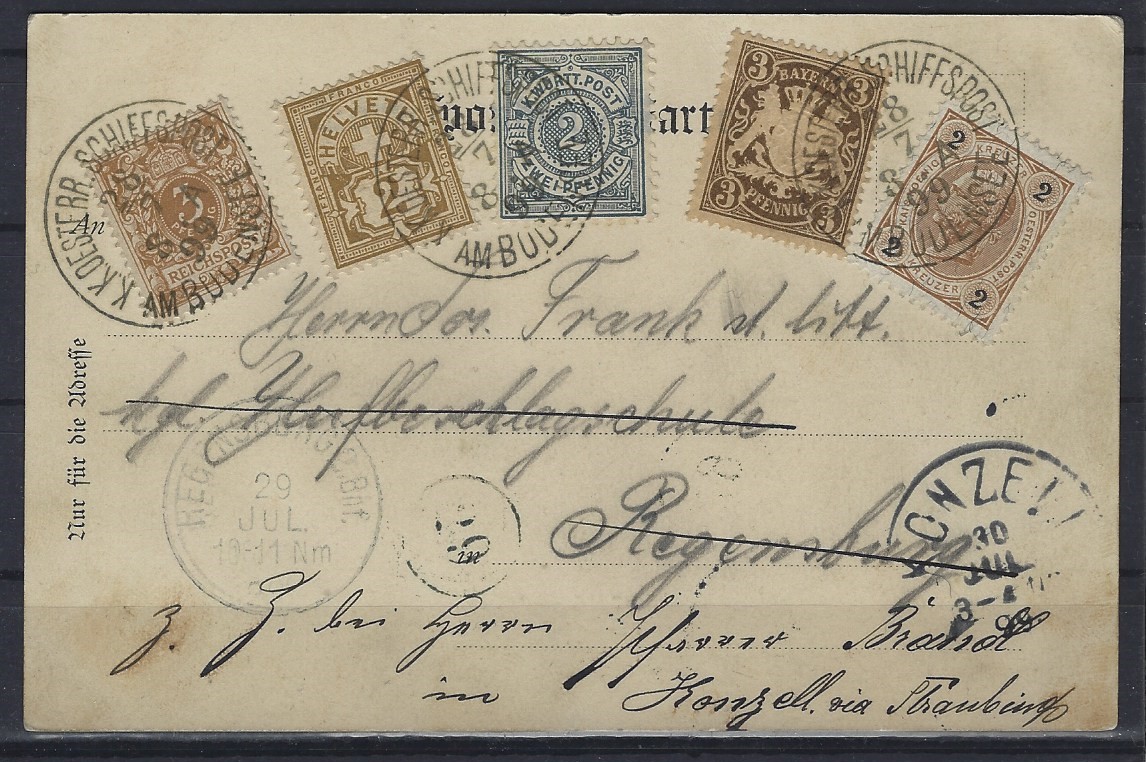 K.K. OESTERR. SCHIFFSPOST
28 7 A
8 99
AM BODENSEE
3
REICHSPOST
FRANCO
HELVETIA
2
K.WÜRTT.POST
2
ZWEI PFENNIG
BAYERN
3 3
3 3
PFENNIG
2
2
2
2
KREUZER
OESTERR. POST
SCHIFFSPOST
AM BOD
SCHIFFSPOST
28
7 A
8 99
An
Herrn Jos. Frank
kgl. Hufbeschlagschule
Regensburg
in
Nur für die Adresse
29
JUL.
10-11 Nm
KONZELL
30
JUL
3-4
99
z. Z. bei Herrn Pfarrer Brandl
in Konzell. via Straubing